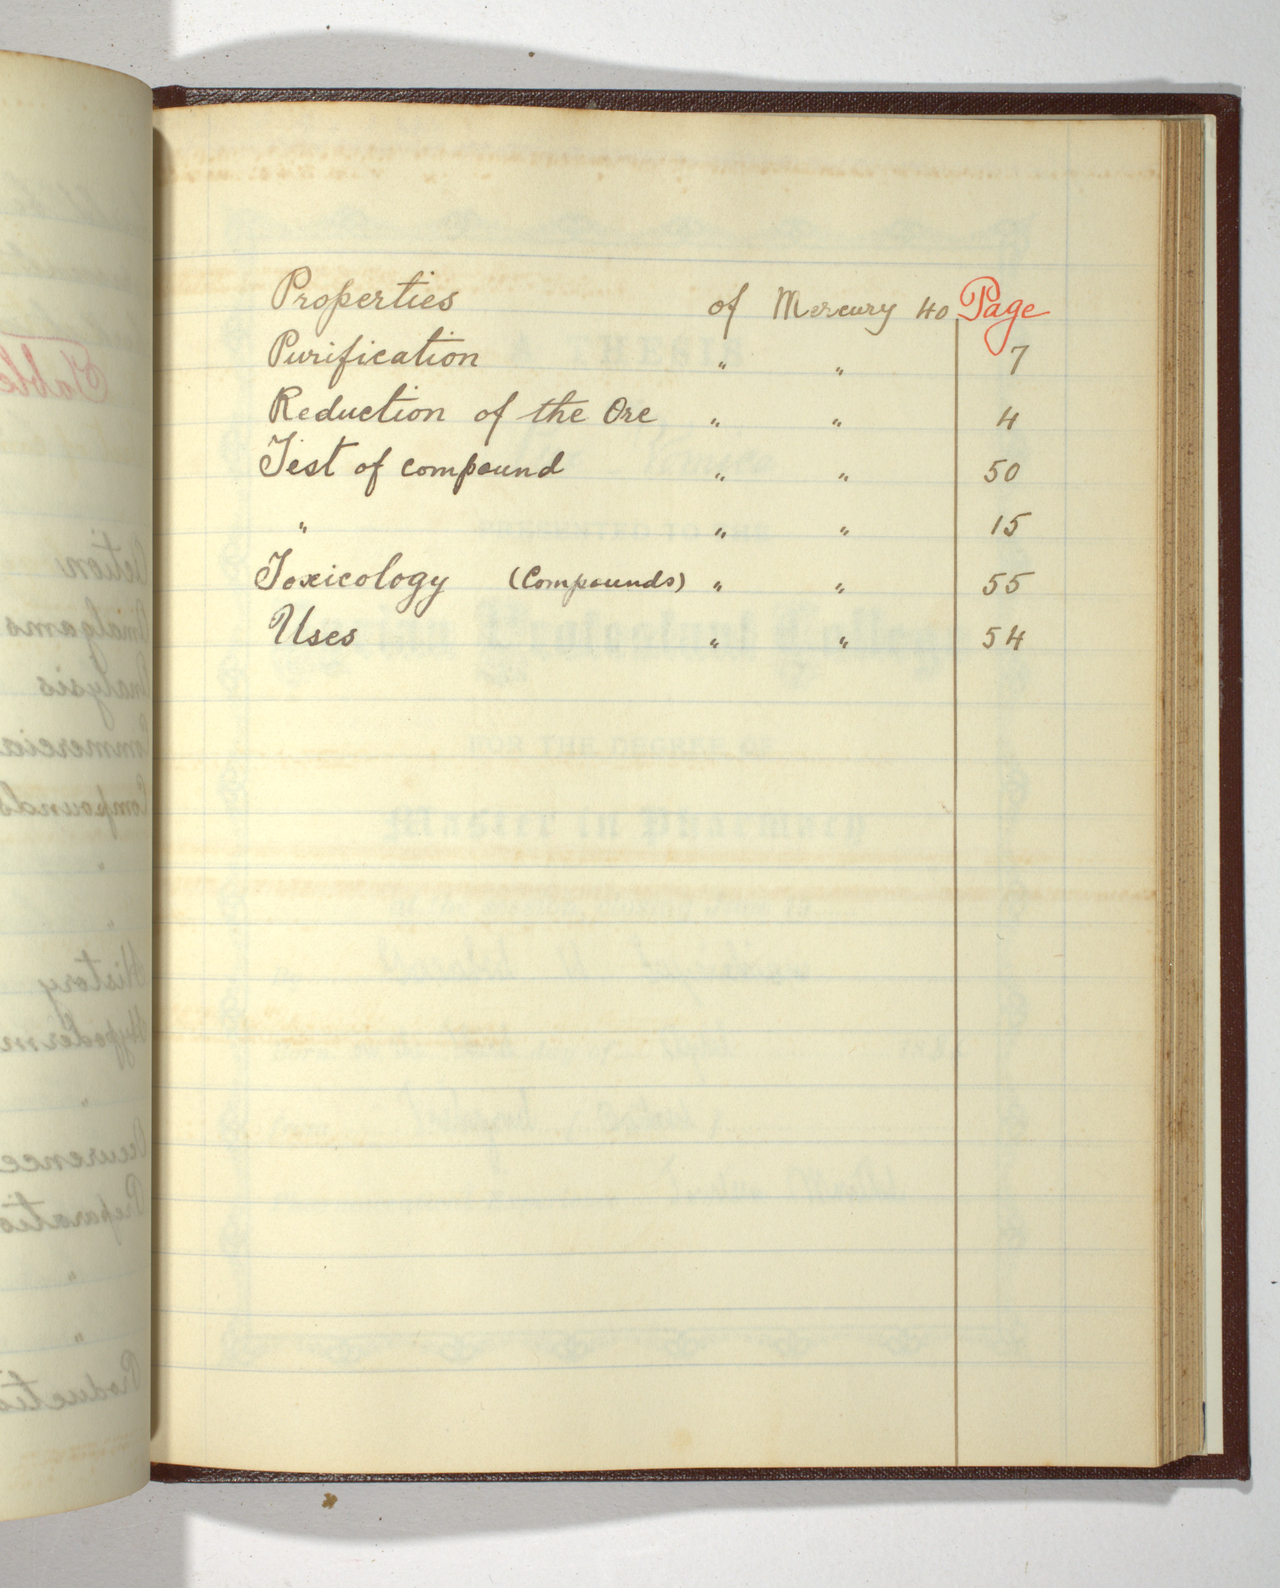 Properties of Mercury 40 Page
Purification " " 7
Reduction of the Ore " " 4
Test of compound " " 50
" " " 15
Toxicology (Compounds) " " 55
Uses " " 54